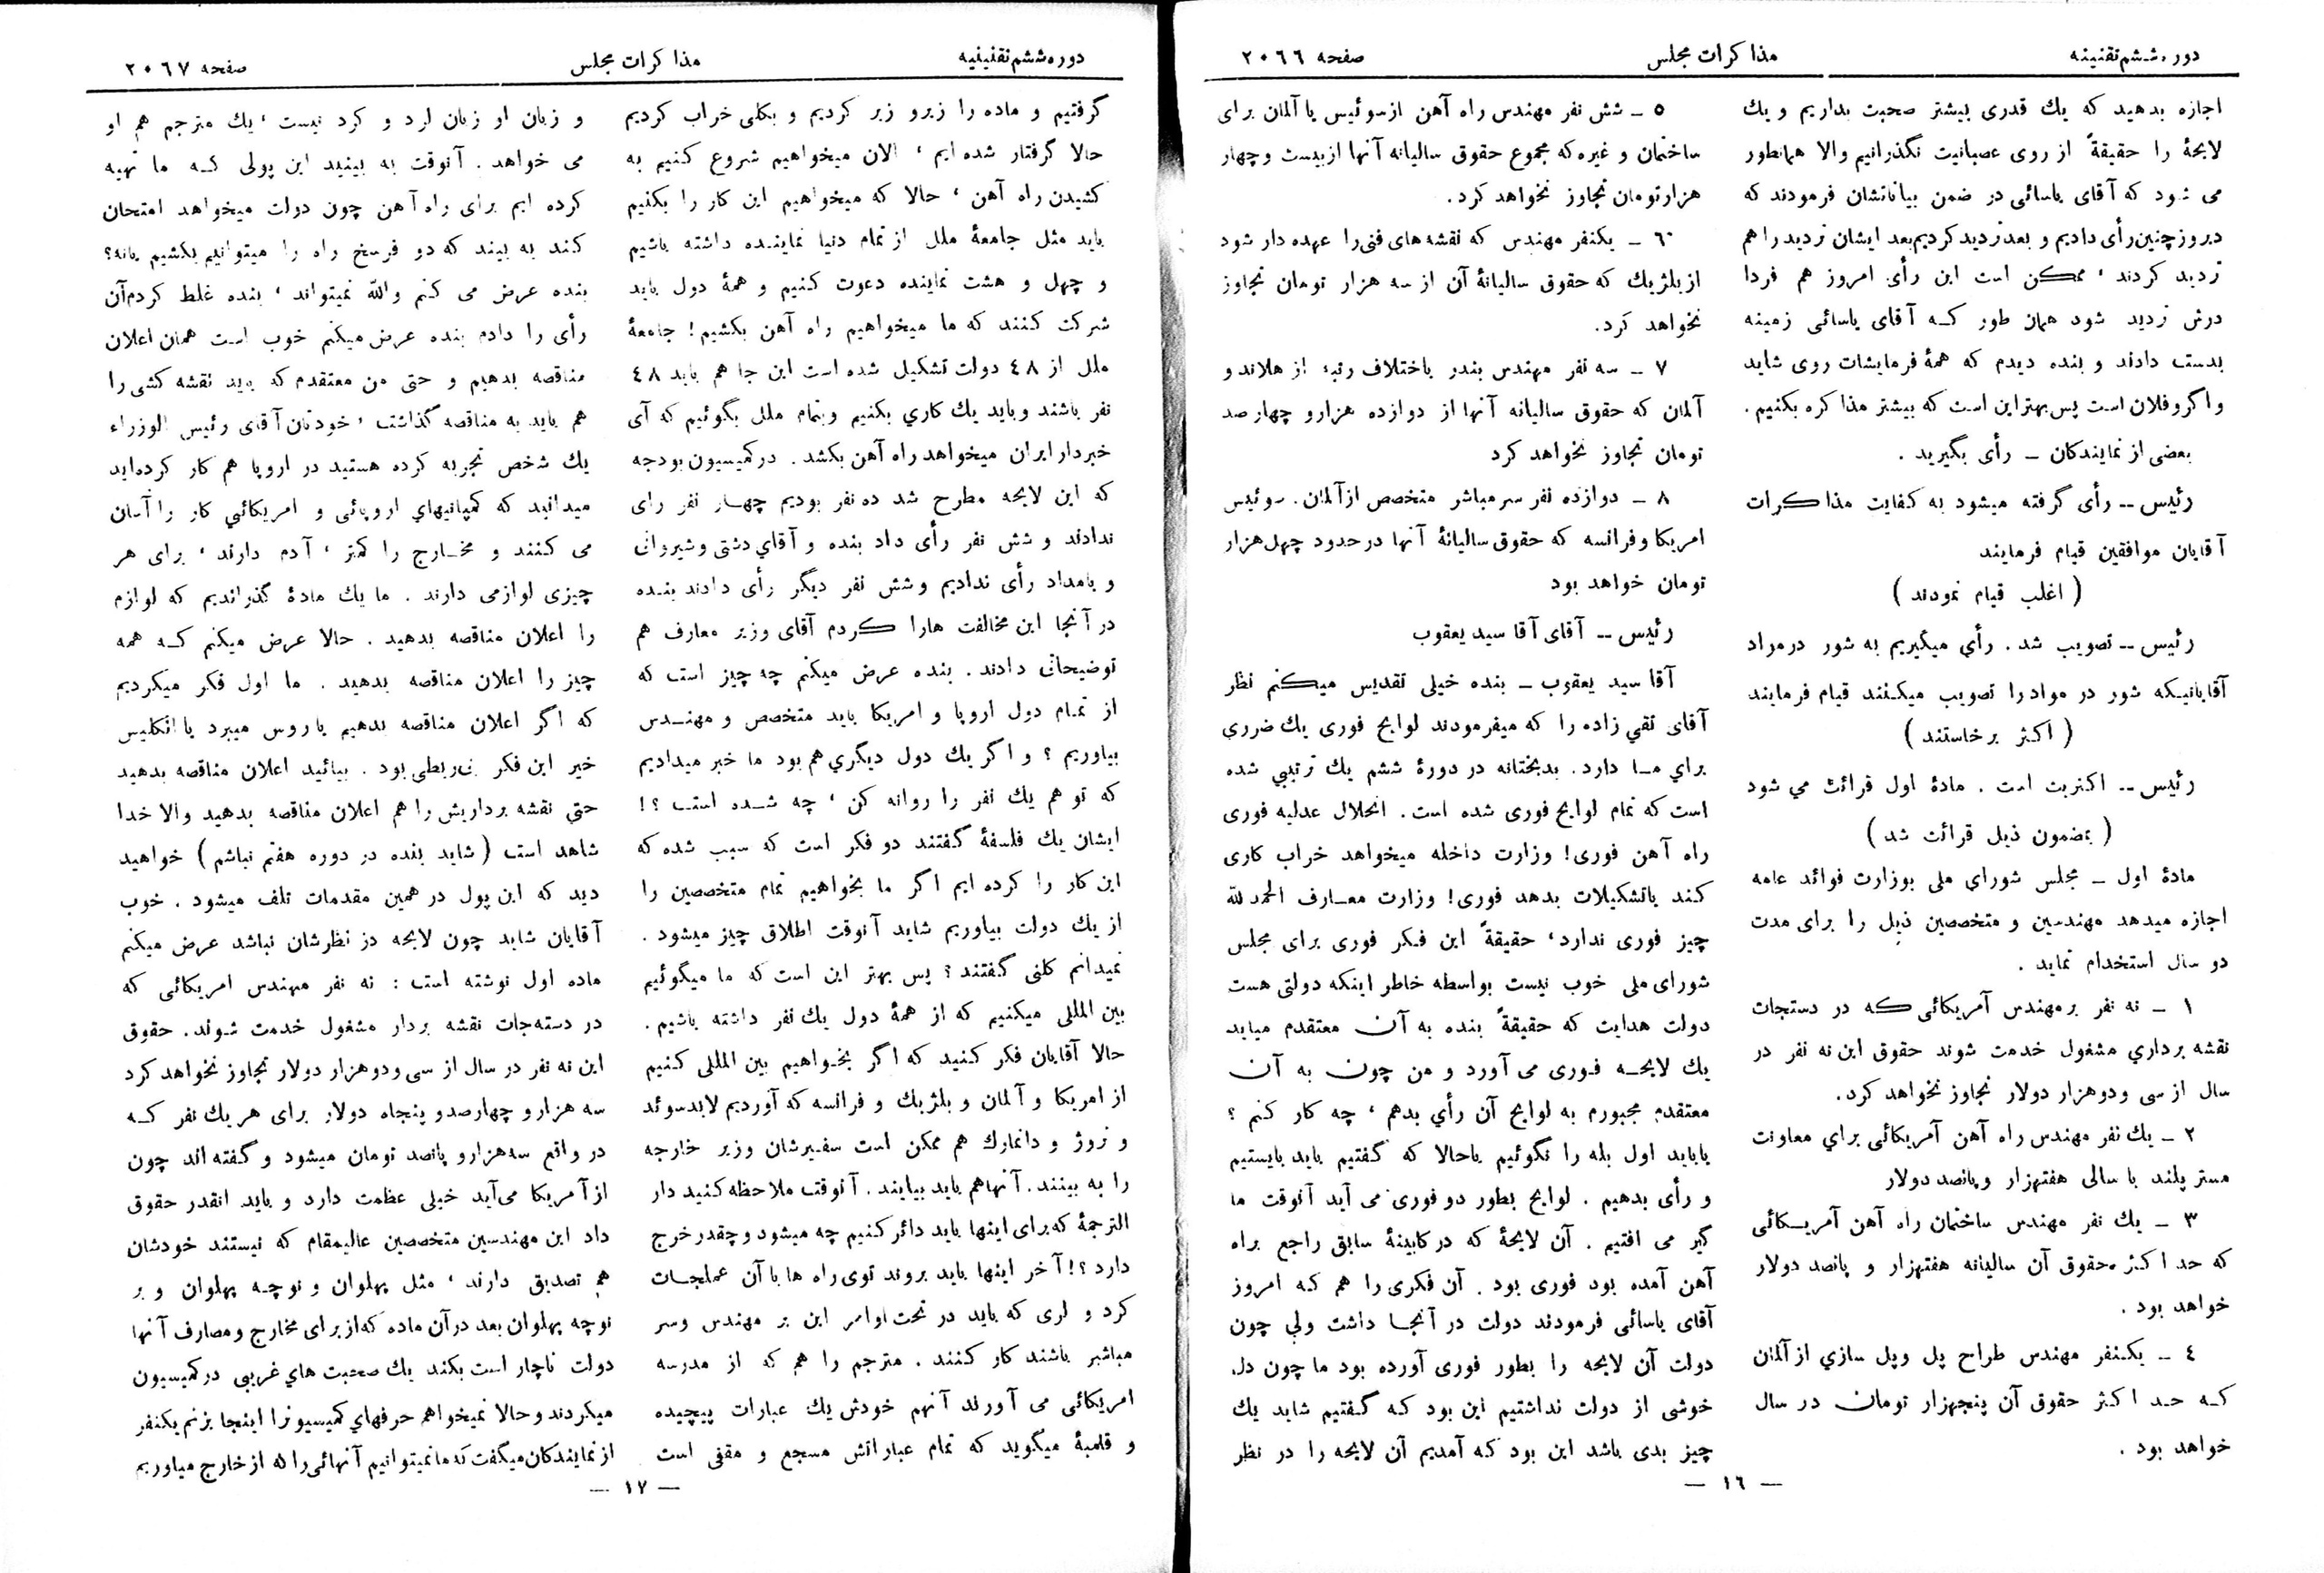 دوره ششم تقنینه
مذاکرات مجلس
صفحه ۲۰۶۶
اجازه بدهید که یك قدری بیشتر صحبت بداریم و یك
لایحهٔ را حقیقةً از روی عصبانیت نگذرانیم والا همانطور
می شود که آقای یاسائی در ضمن بیاناتشان فرمودند که
دیروز چنین رأی دادیم و بعد تردید کردیم بعد ایشان تردید را هم
تردید کردند ، ممکن است این رأی امروز هم فردا
درش تردید شود همان طور که آقای یاسائی زمینه
بدست دادند و بنده دیدم که همهٔ فرمایشات روی شاید
و اگر و فلان است پس بهتر این است که بیشتر مذاکره بکنیم .
بعضی از نمایندکان ــ رأی بگیرید .
رئیس ــ رأی گرفته میشود به کفایت مذاکرات
آقایان موافقین قیام فرمایند
( اغلب قیام نمودند )
رئیس ــ تصویب شد . رأي میگیریم به شور در مواد
آقایانیکه شور در مواد را تصویب میکنند قیام فرمایند
( اکثر برخاستند )
رئیس ــ اکثریت است . مادهٔ اول قرائت می شود
( بمضمون ذیل قرائت شد )
مادهٔ اول ــ مجلس شورای ملی بوزارت فوائد عامه
اجازه میدهد مهندسین و متخصصین ذیل را برای مدت
دو سال استخدام نماید .
۱ ــ نه نفر بر مهندس آمریکائی که در دستجات
نقشه برداري مشغول خدمت شوند حقوق این نه نفر در
سال از سی و دو هزار دولار تجاوز نخواهد کرد .
۲ ــ یك نفر مهندس راه آهن آمریکائی براي معاونت
مستر پلند با سالی هفتهزار و پانصد دولار
۳ ــ یك نفر مهندس ساختمان راه آهن آمریکائی
که حد اکثر حقوق آن سالیانه هفتهزار و پانصد دولار
خواهد بود .
٤ ــ یکنفر مهندس طراح پل و پل سازي از آلمان
که حد اکثر حقوق آن پنجهزار تومان در سال
خواهد بود .
٥ ــ شش نفر مهندس راه آهن از سوئیس یا آلمان برای
ساختمان و غیره که مجموع حقوق سالیانه آنها از بیست و چهار
هزار تومان تجاوز نخواهد کرد .
٦ ــ یکنفر مهندس که نقشه های فنی را عهده دار شود
از بلژیك که حقوق سالیانهٔ آن از سه هزار تومان تجاوز
نخواهد کرد .
۷ ــ سه نفر مهندس بندر باختلاف رتبه از هلاند و
آلمان که حقوق سالیانه آنها از دوازده هزار و چهار صد
تومان تجاوز نخواهد کرد
۸ ــ دوازده نفر سر مباشر متخصص از آلمان . سوئیس
امریکا و فرانسه که حقوق سالیانهٔ آنها در حدود چهل هزار
تومان خواهد بود
رئیس ــ آقای آقا سید یعقوب
آقا سید یعقوب ــ بنده خیلی تقدیس میکنم نظر
آقای تقی زاده را که میفرمودند لوایح فوری یك ضرری
براي ما دارد . بدبختانه در دورهٔ ششم یك ترتیبي شده
است که تمام لوایح فوری شده است . انحلال عدلیه فوری
راه آهن فوری ! وزارت داخله میخواهد خراب کاری
کند یا تشکیلات بدهد فوری ! وزارت معارف الحمد لله
چیز فوری ندارد ، حقیقةً این فکر فوری برای مجلس
شورای ملی خوب نیست بواسطه خاطر اینکه دولتی هست
دولت هدایت که حقیقةً بنده به آن معتقدم میاید
یك لایحه فوری می آورد و من چون به آن
معتقدم مجبورم به لوایح آن رأي بدهم ، چه کار کنم ؟
یا باید اول بله را نگوئیم یا حالا که گفتیم باید بایستیم
و رأی بدهیم . لوایح بطور دو فوری می آید آنوقت ما
گیر می افتیم . آن لایحهٔ که در کابینهٔ سابق راجع براه
آهن آمده بود فوری بود . آن فکری را هم که امروز
آقای یاسائی فرمودند دولت در آنجا داشت ولي چون
دولت آن لایحه را بطور فوری آورده بود ما چون دل
خوشی از دولت نداشتیم این بود که گفتیم شاید یك
چیز بدی باشد این بود که آمدیم آن لایحه را در نظر
ــ ۱٦ ــ
دوره ششم تقنینیه
مذاکرات مجلس
صفحه ۲۰۶۷
گرفتیم و ماده را زیر و زبر کردیم و بکلی خراب کردیم
حالا گرفتار شده ایم ، الان میخواهیم شروع کنیم به
کشیدن راه آهن ، حالا که میخواهیم این کار را بکنیم
باید مثل جامعهٔ ملل از تمام دنیا نماینده داشته باشیم
و چهل و هشت نماینده دعوت کنیم و همهٔ دول باید
شرکت کنند که ما میخواهیم راه آهن بکشیم ! جامعهٔ
ملل از ٤٨ دولت تشکیل شده است این جا هم باید ٤٨
نفر باشند و باید یك کاري بکنیم و بتمام ملل بگوئیم که آی
خبردار ایران میخواهد راه آهن بکشد . در کمیسیون بودجه
که این لایحه مطرح شد ده نفر بودیم چهار نفر رای
ندادند و شش نفر رأی داد بنده و آقاي دشتی و شیروانی
و بامداد رأی ندادیم و شش نفر دیگر رأی دادند بنده
در آنجا این مخالفت ها را کردم آقای وزیر معارف هم
توضیحاتی دادند . بنده عرض میکنم چه چیز است که
از تمام دول اروپا و امریکا باید متخصص و مهندس
بیاوریم ؟ و اگر یك دول دیگري هم بود ما خبر میدادیم
که تو هم یك نفر را روانه کن ، چه شده است ؟ !
ایشان یك فلسفهٔ گفتند دو فکر است که سبب شده که
این کار را کرده ایم اگر ما بخواهیم تمام متخصصین را
از یك دولت بیاوریم شاید آنوقت اطلاق چیز میشود .
نمیدانم کلنی گفتند ؟ پس بهتر این است که ما میگوئیم
بین المللی میکنیم که از همهٔ دول یك نفر داشته باشیم .
حالا آقایان فکر کنید که اگر بخواهیم بین المللی کنیم
از امریکا و آلمان و بلژیك و فرانسه که آوردیم لابد سوئد
و نروژ و دانمارك هم ممکن است سفیرشان وزیر خارجه
را به بینند . آنها هم باید بیایند . آنوقت ملاحظه کنید دار
الترجمهٔ که برای اینها باید دائر کنیم چه میشود و چقدر خرج
دارد ؟ ! آخر اینها باید بروند توی راه ها با آن عملجات
کرد و لری که باید در تحت اوامر این بر مهندس وسر
مباشر باشند کار کنند . مترجم را هم که از مدرسه
امریکائی می آورند آنهم خودش یك عبارات پیچیده
و قلمبهٔ میگوید که تمام عباراتش مسجع و مقفی است
و زبان او زبان لرد و کرد نیست ، یك مترجم هم او
می خواهد . آنوقت به بینید این پولی که ما تهیه
کرده ایم برای راه آهن چون دولت میخواهد امتحان
کند به بیند که دو فرسخ راه را میتوانیم بکشیم یا نه ؟
بنده عرض می کنم والله نمیتواند ، بنده غلط کردم آن
رأی را دادم بنده عرض میکنم خوب است همان اعلان
مناقصه بدهیم و حتی من معتقدم که باید نقشه کشی را
هم باید به مناقصه گذاشت ، خودتان آقای رئیس الوزراء
یك شخص تجربه کرده هستید در اروپا هم کار کرده اید
میدانید که کمپانیهاي اروپائی و امریکائی کار را آسان
می کنند و مخارج را کمتر ، آدم دارند ، برای هر
چیزی لوازمی دارند . ما یك مادهٔ گذراندیم که لوازم
را اعلان مناقصه بدهید . حالا عرض میکنم که همه
چیز را اعلان مناقصه بدهید . ما اول فکر میکردیم
که اگر اعلان مناقصه بدهیم یا روس میبرد یا انگلیس
خیر این فکر بی ربطی بود . بیائید اعلان مناقصه بدهید
حتي نقشه برداریش را هم اعلان مناقصه بدهید والا خدا
شاهد است ( شاید بنده در دوره هفتم نباشم ) خواهید
دید که این پول در همین مقدمات تلف میشود . خوب
آقایان شاید چون لایحه در نظرشان نباشد عرض میکنم
ماده اول نوشته است : نه نفر مهندس امریکائی که
در دسته جات نقشه بردار مشغول خدمت شوند . حقوق
این نه نفر در سال از سی و دو هزار دولار تجاوز نخواهد کرد
سه هزار و چهار صد و پنجاه دولار برای هر یك نفر که
در واقع سه هزار و پانصد تومان میشود و گفته اند چون
از آمریکا می آید خیلی عظمت دارد و باید انقدر حقوق
داد این مهندسین متخصصین عالیمقام که نیستند خودشان
هم تصدیق دارند ، مثل پهلوان و نوچه پهلوان و بر
نوچه پهلوان بعد در آن ماده که از برای مخارج و مصارف آنها
دولت ناچار است بکند یك صحبت هاي غریبی در کمیسیون
میکردند و حالا نمیخواهم حرفهاي کمیسیون را اینجا بزنم یکنفر
از نمایندکان میگفت که ما نمیتوانیم آنهائی را که از خارج میاوریم
ــ ۱۷ ــ